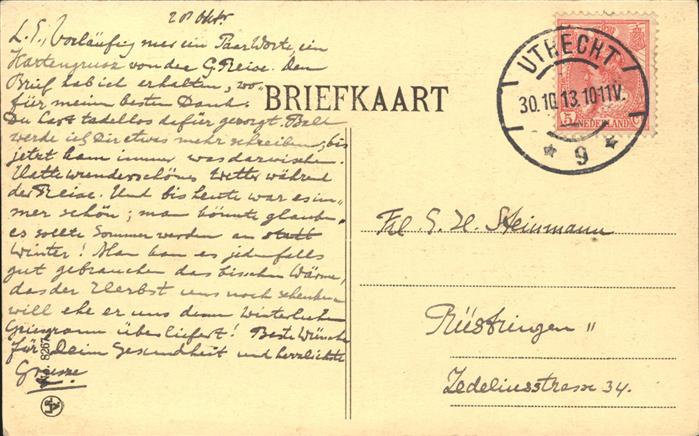 28 Okt.
L. E., Vorläufig nur ein Paar Worte, ein
Kartengruss von der G. Reise. Den
Brief hab ich erhalten, wo-
für meinen besten Dank.
Du hast tadellos dafür gesorgt. Bald
werde ich Dir etwas mehr schreiben; bis
jetzt kam immer was dazwischen.
Hatte wunderschönes Wetter während
der Reise. Und bis heute war es im-
mer schön; man könnte glauben,
es sollte Sommer werden an statt
Winter! Man kan es jedenfalls
gut gebrauchen das bisschen Wärme,
das der Herbst uns noch schenken
will ehe er uns dem Winterlichen
Griesgram überliefert! Beste Wünsche
für Deine Gesundheit und herzlichste
Grüsse
BRIEFKAART
UTRECHT
30.10.13.10-11V.
9
5
NEDERLAND
Frl. E. H. Steinmann
Rüstringen "
Zedeliusstrasse 34.
8267